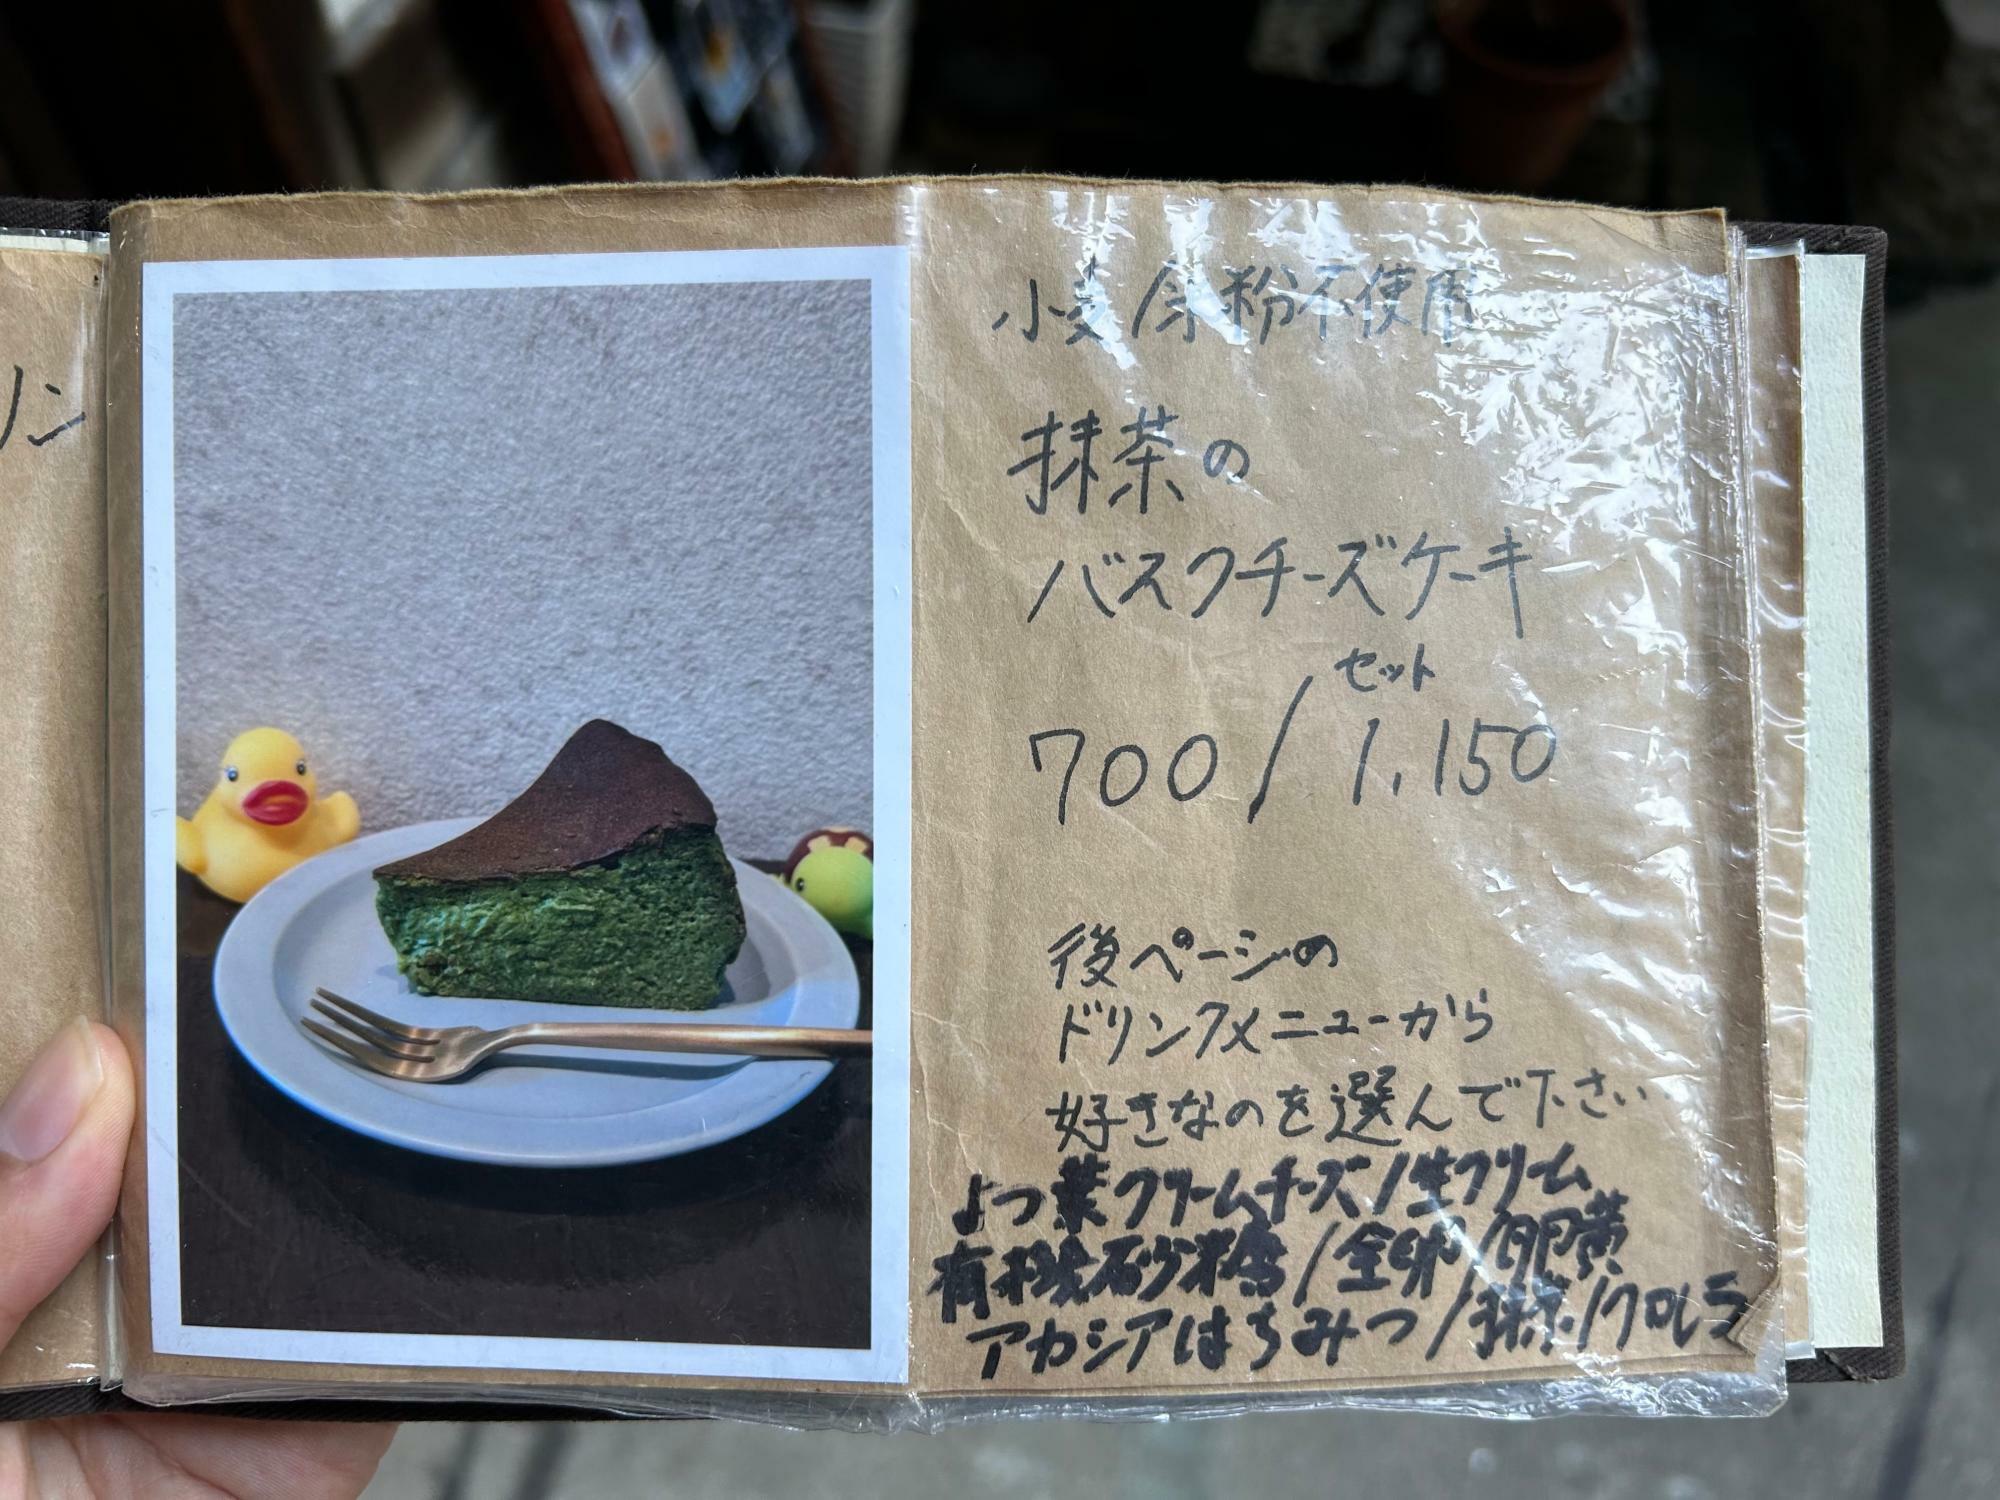 ン
小麦/余粉不使用
抹茶の
バスクチーズケーキ
セット
700/1,150
後ページの
ドリンクメニューから
好きなのを選んで下さい
よつ葉クリームチーズ/生クリーム
有機砂糖/全卵/卵黄
アカシアはちみつ/抹茶/クロレラ